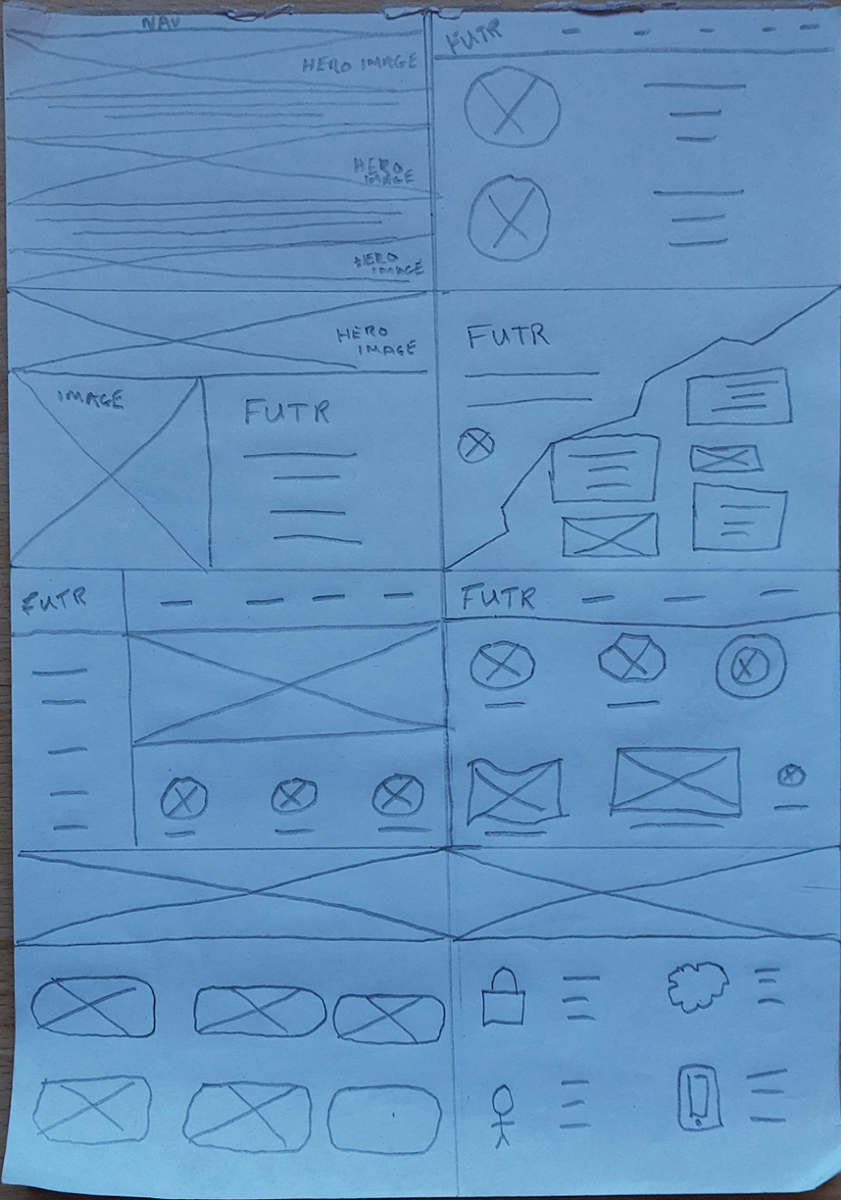 NAV
HERO IMAGE
HERO
IMAGE
HERO
IMAGE
FUTR
HERO
IMAGE
IMAGE
FUTR
FUTR
FUTR
FUTR